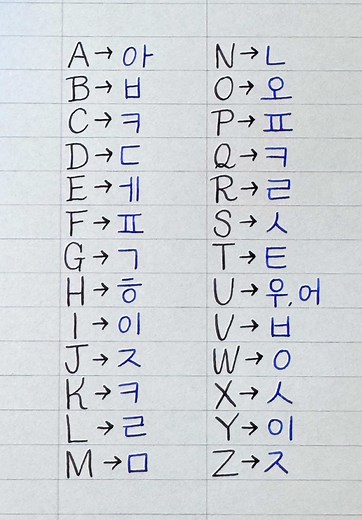 A → 아
B → ㅂ
C → ㅋ
D → ㄷ
E → ㅔ
F → ㅍ
G → ㄱ
H → ㅎ
I → 이
J → ㅈ
K → ㅋ
L → ㄹ
M → ㅁ
N → ㄴ
O → 오
P → ㅍ
Q → ㅋ
R → ㄹ
S → ㅅ
T → ㅌ
U → 우, 어
V → ㅂ
W → ㅇ
X → ㅅ
Y → 이
Z → ㅈ